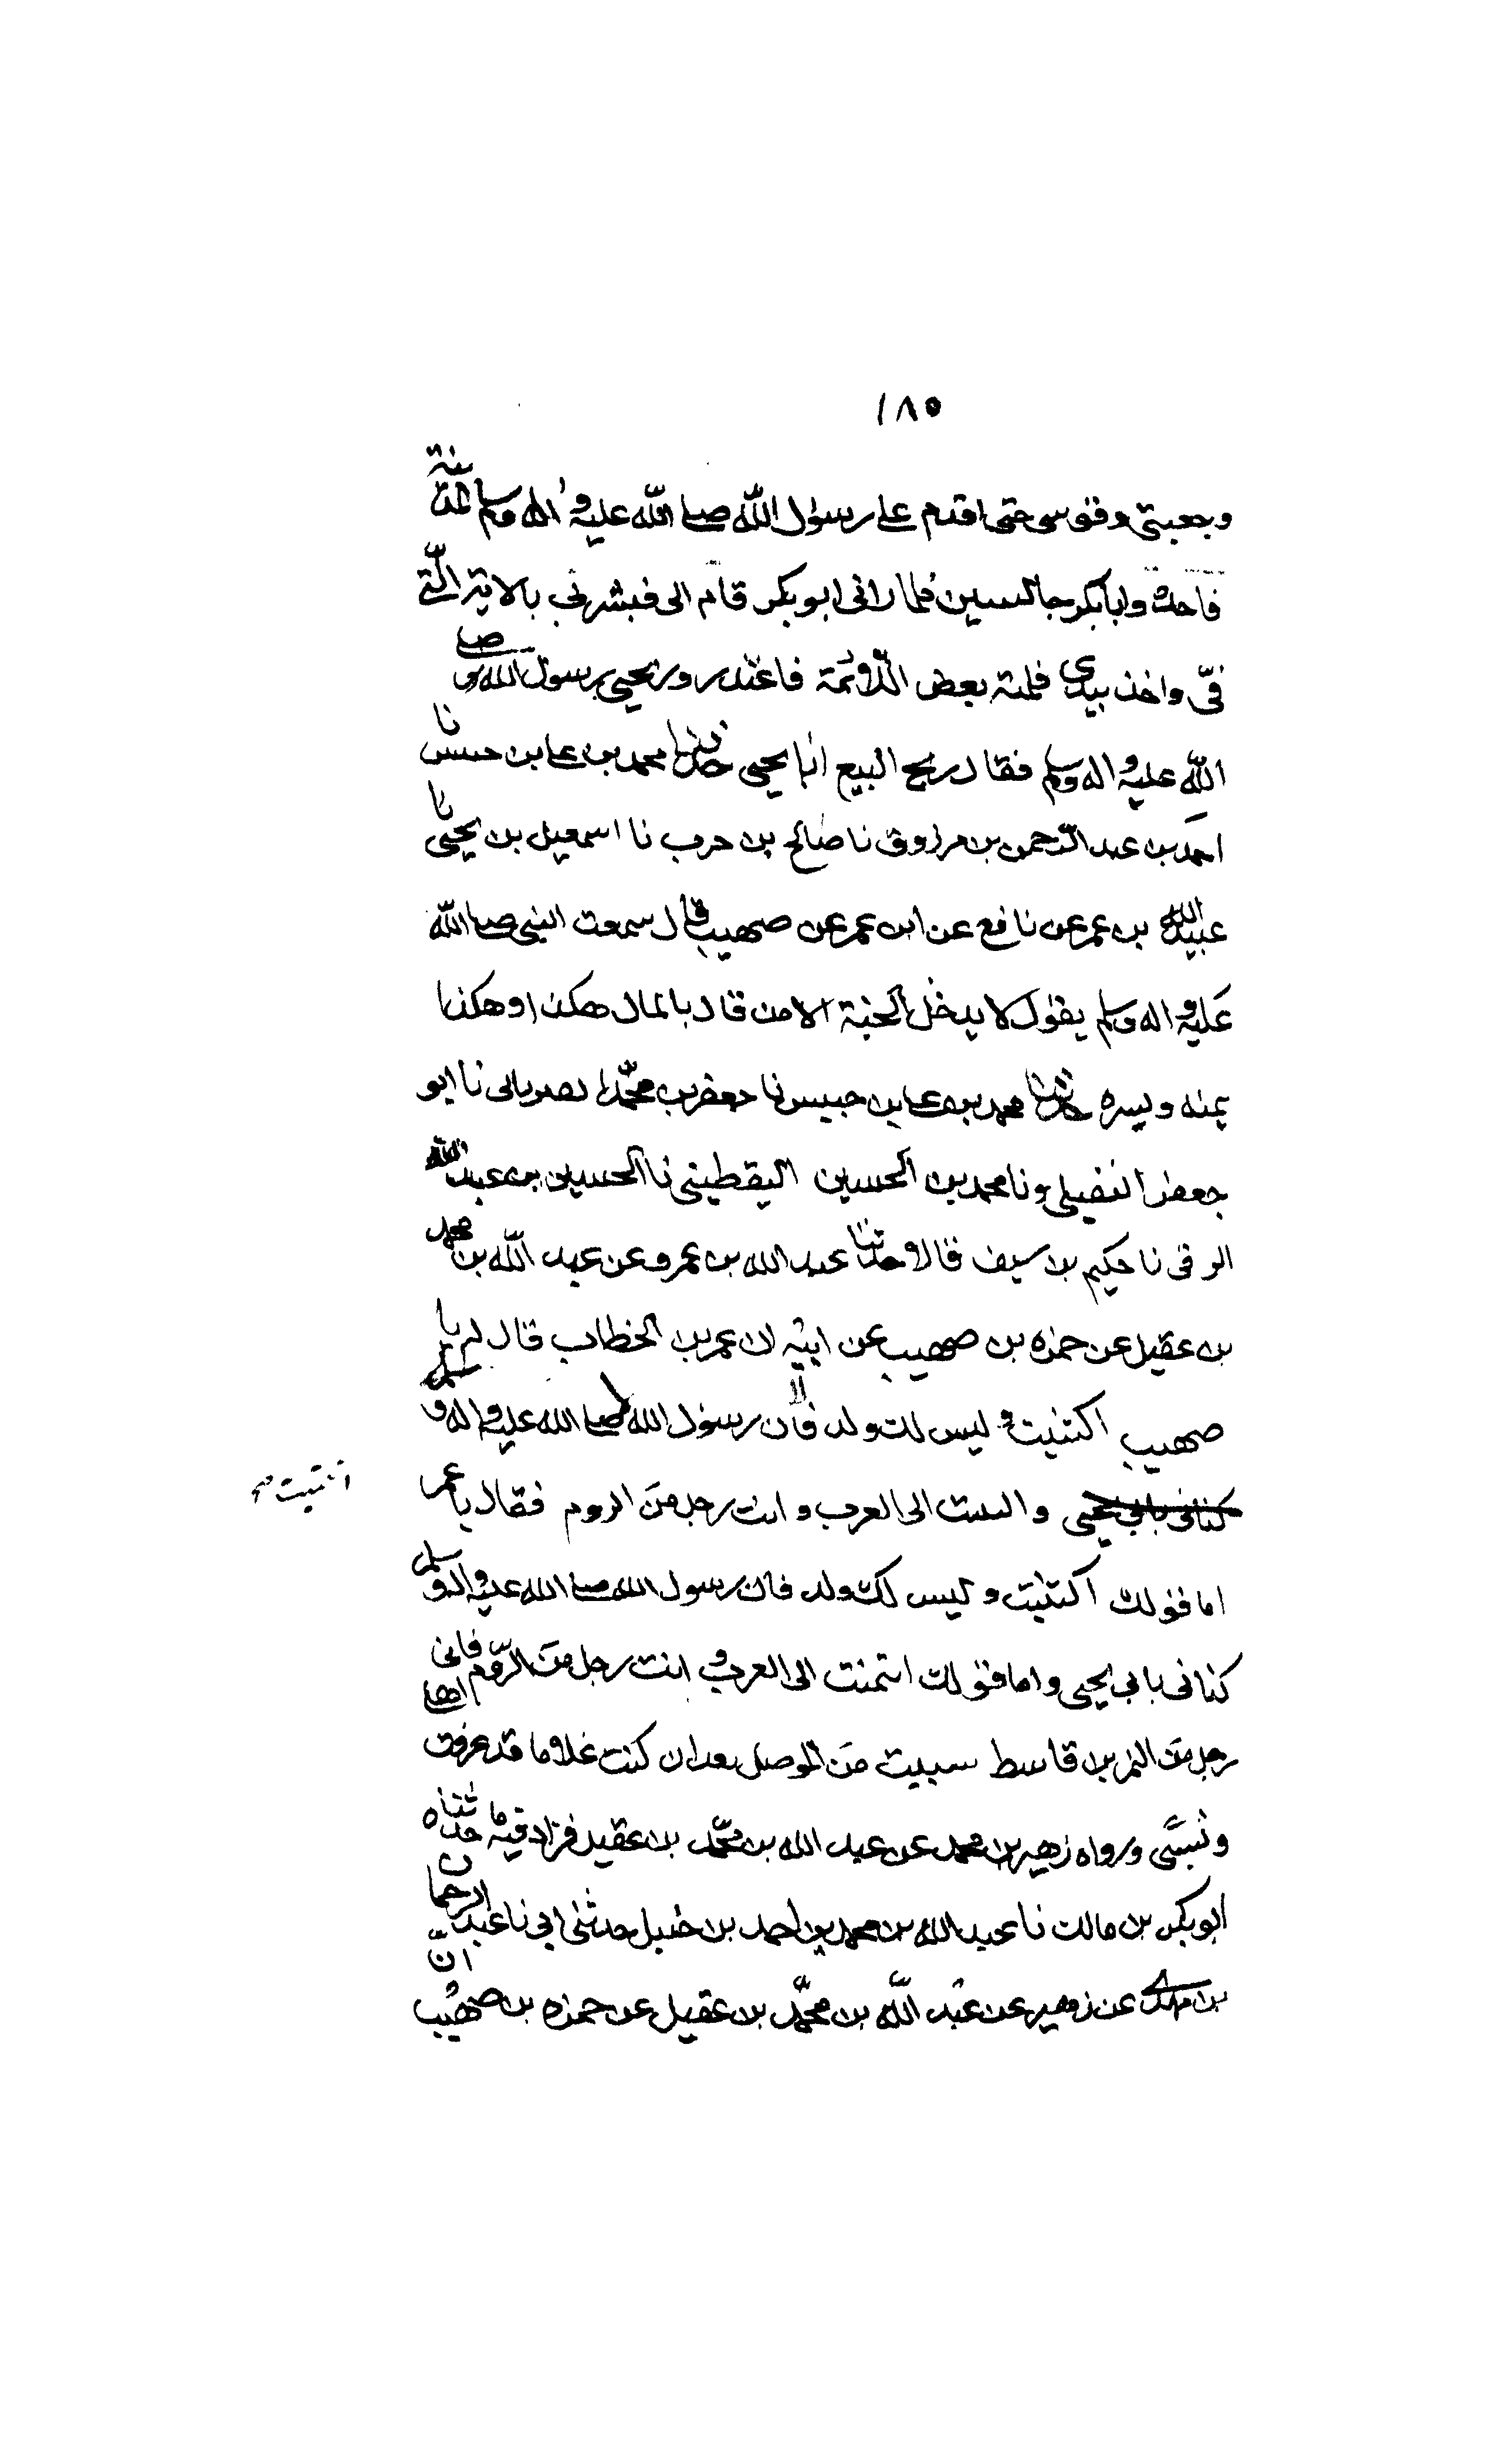 ١٨٥
وجعبتى وقوسى حتى اقدم على رسول الله صلى الله عليه واله وسلم المدينة
فاجده وابابكر جالسين فلما رانى ابوبكر قام الى فبشرنى بالاية التى
فى واخذ بيدى فلمته بعض اللائمة فاعتذر وربحنى رسول الله صلى
الله عليه واله وسلم فقال ربح البيع ابا يحيى حدثنا محمد بن على بن حبيش نا
احمد بن عبد الرحمن بن مرزوق نا صالح بن حرب نا اسمعيل بن يحيى نا
عبيدالله بن عمر عن نافع عن ابن عمر عن صهيب قال سمعت النبى صلى الله
عليه واله وسلم يقول لا يدخل الجنة الا من قال بالمال هكذا وهكذا
يمنه ويسره حدثنا محمد بن على بن حبيس نا جعفر بن محمد نا ابو
جعفر النفيلى ونا محمد بن الحسين اليقطينى نا الحسين بن عبدالله
الرقى نا حكيم بن سيف قالا حدثنا عبد الله بن عمرو عن عبد الله بن محمد
بن عقيل عن حمزه بن صهيب عن ابيه ان عمر بن الخطاب قال له يا
صهيب اكتنيت وليس لك ولد فقال ان رسول الله صلى الله عليه واله وسلم
كنانى بابى يحيى والست الى العرب وانت رجل من الروم فقال يا عمر
اما قولك اكتنيت وليس لك ولد فان رسول الله صلى الله عليه واله وسلم
كنانى بابى يحيى واما قولك انتمنت الى العرب وانت رجل من الروم فانى
رجل من النمر بن قاسط سبيت من الموصل بعد ان كنت غلاما قد عرفت اهلى
ونسبى ورواه زهير بن محمد عن عبد الله بن محمد بن عقيل فزاد فيه ما حدثناه
ابو بكر بن مالك نا عبد الله بن محمد بن احمد بن حنبل حدثنى ابى نا عبد الرحمان
بن مهدى عن زهير عن عبد الله بن محمد بن عقيل عن حمزه بن صهيب ان